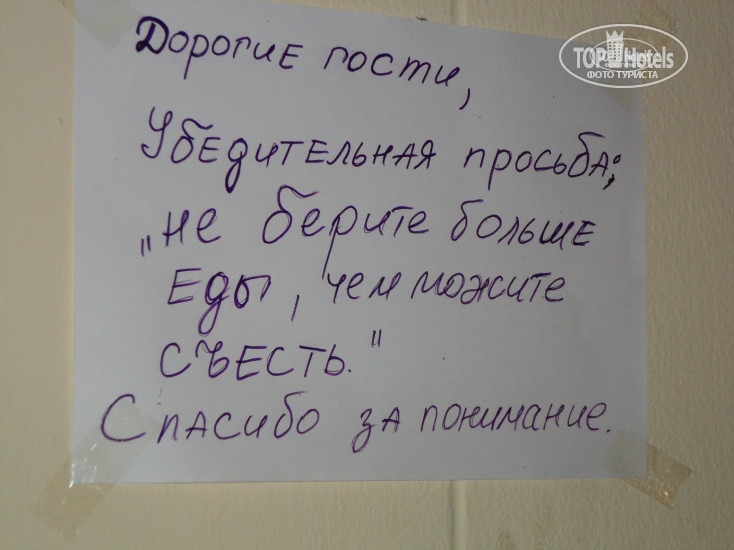 Дорогие гости,
Убедительная просьба;
„не берите больше
еды, чем можите
съесть."
Спасибо за понимание.
TOP Hotels
ФОТО ТУРИСТА